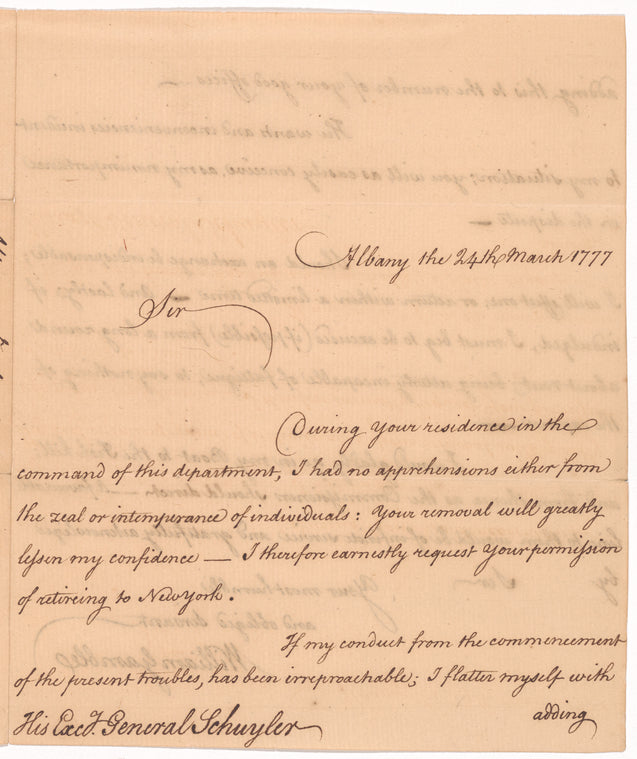 Albany the 24th March 1777
Sir
During Your residence in the
command of this department, I had no apprehensions either from
the zeal or intempurance of individuals: Your removal will greatly
lessen my confidence — I therefore earnestly request Your permission
of retireing to New York.
If my conduct from the commencement
of the present troubles, has been irreproachable; I flatter myself with
adding
His Excy. General Schuyler